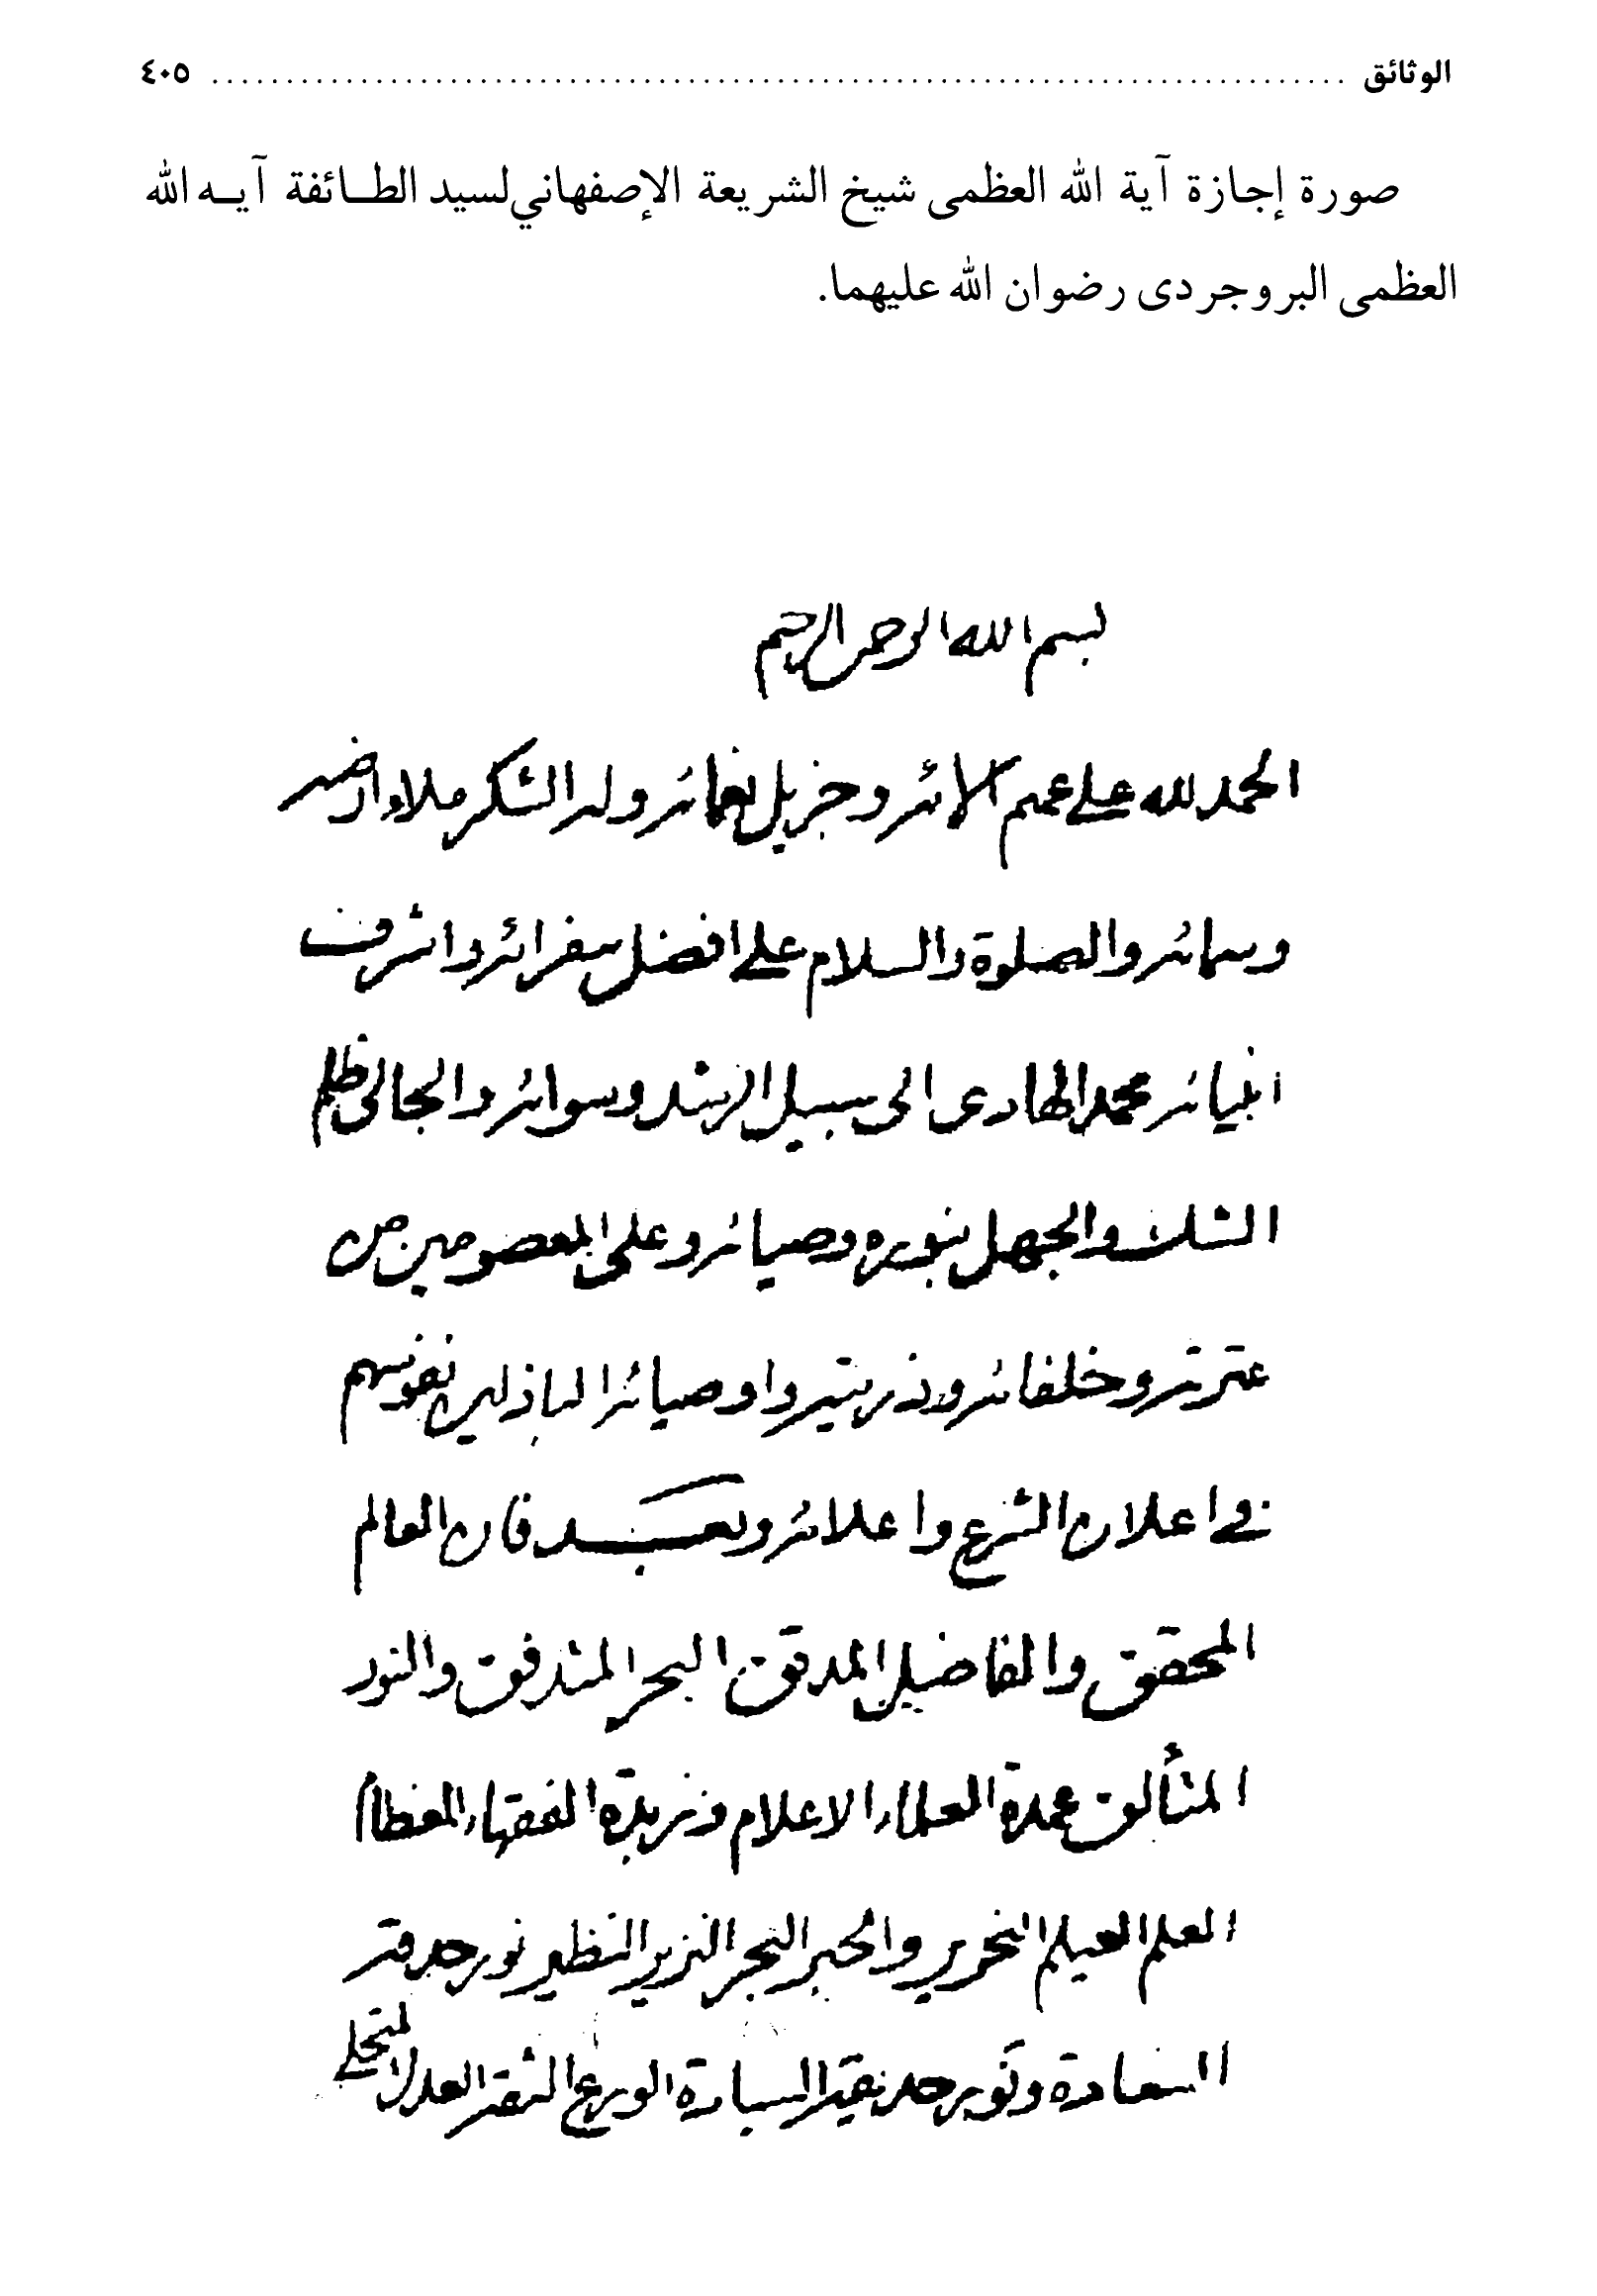 الوثائق ........................................ ٤٠٥
صورة إجازة آية الله العظمى شيخ الشريعة الإصفهاني لسيد الطـائفة آيـه الله
العظمى البروجردى رضوان الله عليهما.
بسم الله الرحمن الرحيم
الحمد لله على عميم آلائه وجزيل نعمائه وله الشكر ملاء ارضه
وسمائه والصلوة والسلام على افضل سفرائه واشرف
انبيائه محمد الهادى الى سبيل الرشد وسوائه والجالى ظلم
الشك والجهل بنوره وضيائه وعلى المعصومين من
عترته وخلفائه وذريته واوصيائه الباذلين نفوسهم
فى اعلان الشرع واعلائه وبعد فان العالم
المحقق والفاضل المدقق البحر المتدفق والنور
المتألق عمدة العلماء الاعلام وزبدة الفقهاء العظام
العلم العيلم النحرير والحبر البحر النزير النظير نور حدقة
السعادة ونور حديقة السيادة الورع الثقة العدل المتحلى